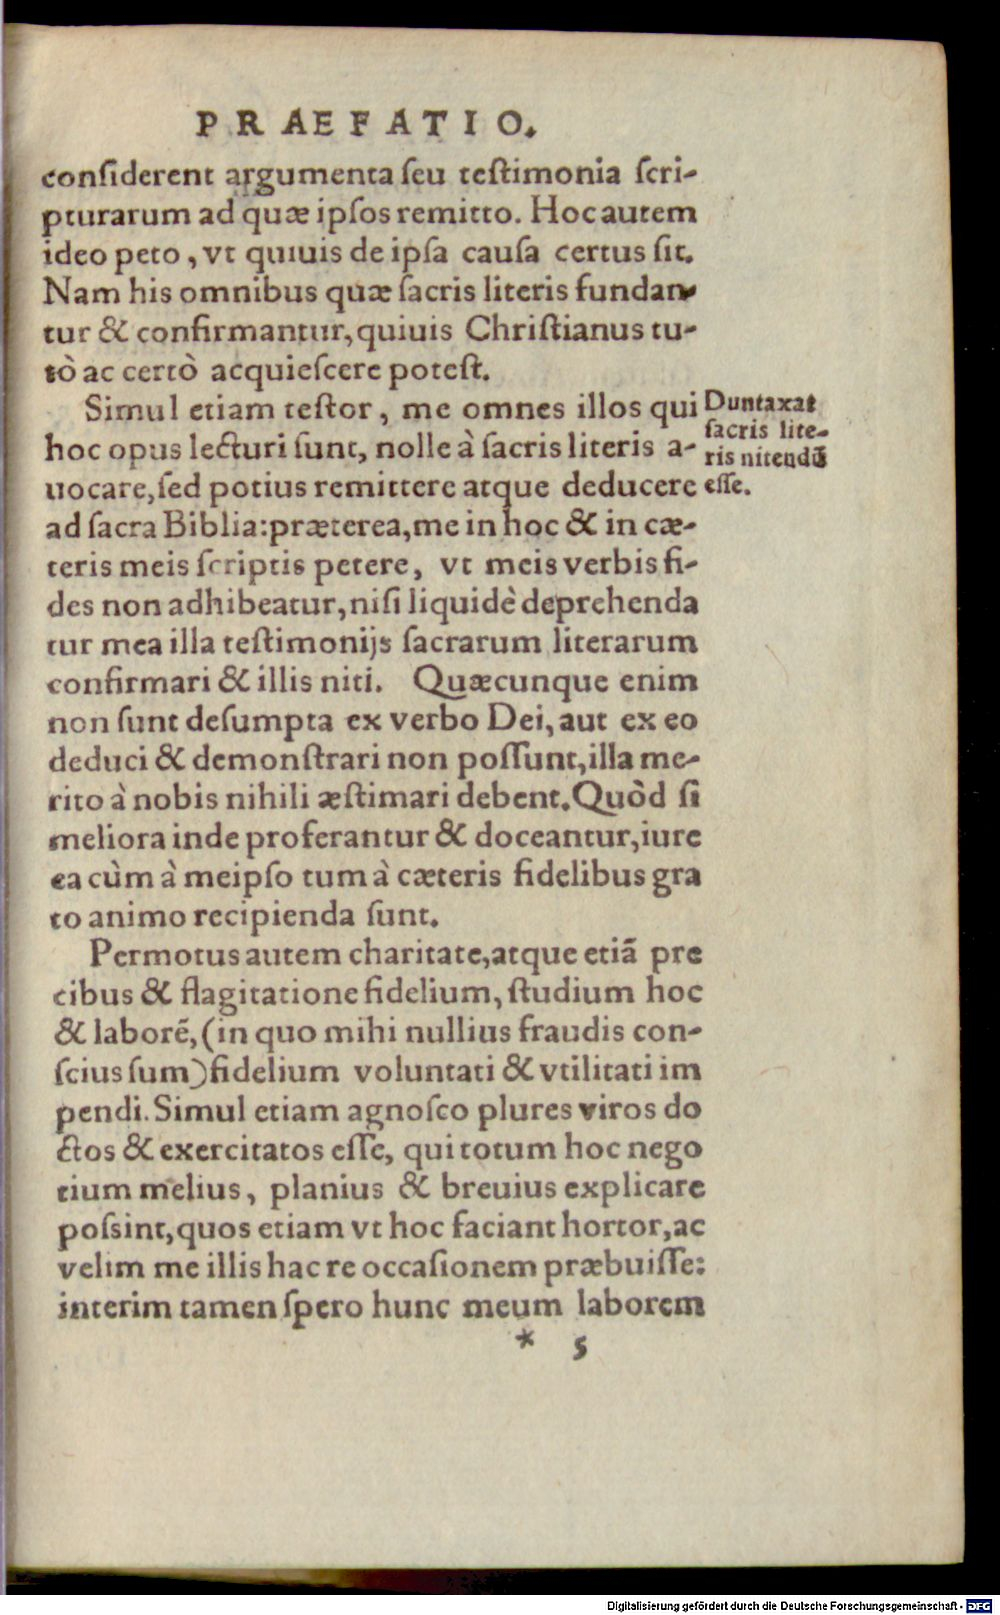 PRAEFATIO.
conſiderent argumenta ſeu teſtimonia ſcri-
pturarum ad quæ ipſos remitto. Hoc autem
ideo peto, vt quiuis de ipſa cauſa certus ſit.
Nam his omnibus quæ ſacris literis fundan-
tur & confirmantur, quiuis Chriſtianus tu-
tò ac certò acquieſcere poteſt.
Simul etiam teſtor, me omnes illos qui
hoc opus lecturi ſunt, nolle à ſacris literis a-
uocare, ſed potius remittere atque deducere
ad ſacra Biblia: præterea, me in hoc & in cæ-
teris meis ſcriptis petere, vt meis verbis fi-
des non adhibeatur, niſi liquidè deprehenda
tur mea illa teſtimonijs ſacrarum literarum
confirmari & illis niti. Quæcunque enim
non ſunt deſumpta ex verbo Dei, aut ex eo
deduci & demonſtrari non poſſunt, illa me-
rito à nobis nihili æſtimari debent. Quòd ſi
meliora inde proferantur & doceantur, iure
ea cùm à meipſo tum à cæteris fidelibus gra
to animo recipienda ſunt.
Permotus autem charitate, atque etiã pre
cibus & flagitatione fidelium, ſtudium hoc
& laborẽ, (in quo mihi nullius fraudis con-
ſcius ſum) fidelium voluntati & vtilitati im
pendi. Simul etiam agnoſco plures viros do
ctos & exercitatos eſſe, qui totum hoc nego
tium melius, planius & breuius explicare
poſsint, quos etiam vt hoc faciant hortor, ac
velim me illis hac re occaſionem præbuiſſe:
interim tamen ſpero hunc meum laborem
* 5
Duntaxat
ſacris lite-
ris nitendũ
eſſe.
Digitalisierung gefördert durch die Deutsche Forschungsgemeinschaft - DFG